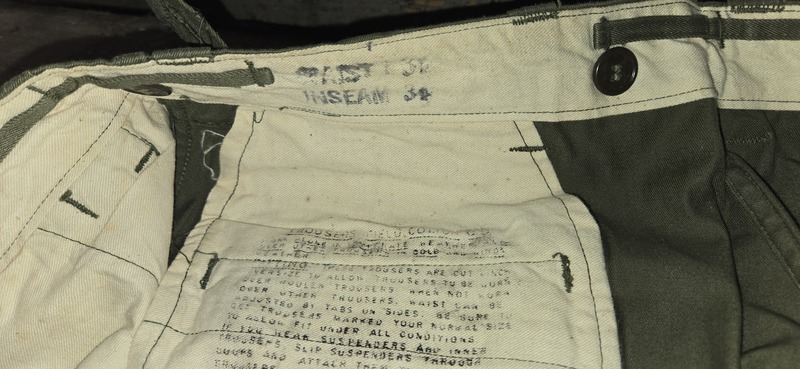 WAIST 3
INSEAM 34
TROUSERS, FIELD, COTTON, O.D.
COLD
FITTING: THESE TROUSERS ARE CUT INCH
OVERSIZE TO ALLOW TROUSERS TO BE WORN
OVER WOOLEN TROUSERS. WHEN NOT WORN
OVER OTHER TROUSERS, WAIST CAN BE
ADJUSTED BY TABS ON SIDES. BE SURE TO
GET TROUSERS MARKED YOUR NORMAL SIZE
TO ALLOW FIT UNDER ALL CONDITIONS.
IF YOU WEAR SUSPENDERS AND INNER
TROUSERS, SLIP SUSPENDERS THROUGH
LOOPS AND ATTACH THEM
TROUSERS